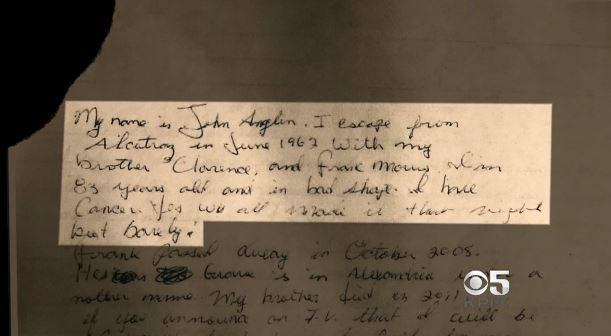 My name is John Anglin. I escape from
Alcatraz in June 1962 With my
brother Clarence, and Frank Morris. I'm
83 years old and in bad shape. I have
Cancer. Yes we all made it that night
but barely!
Frank passed away in October 2008.
His Grave is in Alexandria a
nother name. My brother died in 2011
if you announce on T.V. that I will be
5